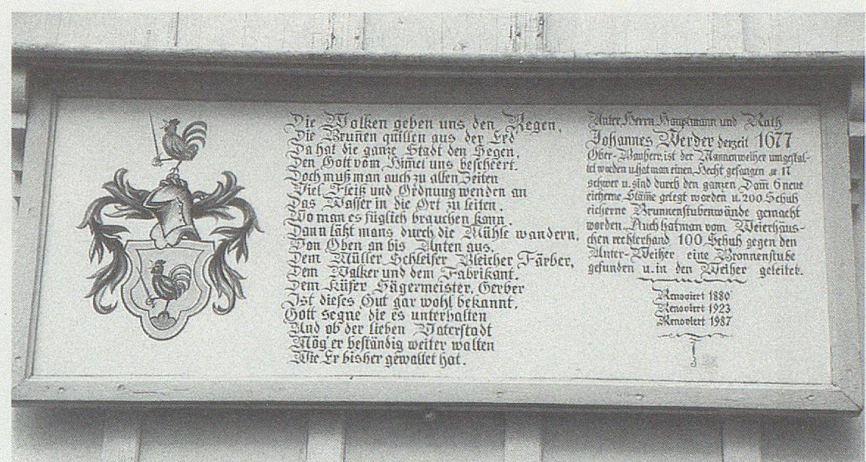 Die Wolken geben uns den Regen,
Die Bruñen quillen aus der Erd
Da hat die ganze Stadt den Segen,
Den Gott vom Him̃el uns bescheert.
Doch muß man auch zu allen Zeiten
Viel Fleiß und Ordnung wenden an
Das Wasser in die Ort zu leiten,
Wo man es füglich brauchen kann.
Dann läßt mans durch die Mühle wandern,
Von Oben an bis Unten aus.
Dem Müller Schleifer Bleicher Färber,
Dem Walker und dem Fabrikant.
Dem Küfer Sägermeister, Gerber
Ist dieses Gut gar wohl bekannt.
Gott segne die es unterhalten
Und ob der lieben Vaterstadt
Mög er beständig weiter walten
Wie Er bisher gewaltet hat.
Unter Herrn Hauptmann und Rath
Johannes Werder derzeit 1677
Ober-Bauherr, ist der Mannenweiher umgestal-
tet worden u. hat man einen Hecht gefangen 17
schwer u. sind durch den ganzen Dam̃ 6 neue
eicherne Stäm̃e gelegt worden u. 200 Schuh
eicherne Brunnenstubenwände gemacht
worden. Auch hat man vom Weierhäus-
chen rechterhand 100 Schuh gegen den
Unter-Weiher eine Bronnenstube
gefunden u. in den Weiher geleitet.
Renoviert 1880
Renoviert 1923
Renoviert 1987